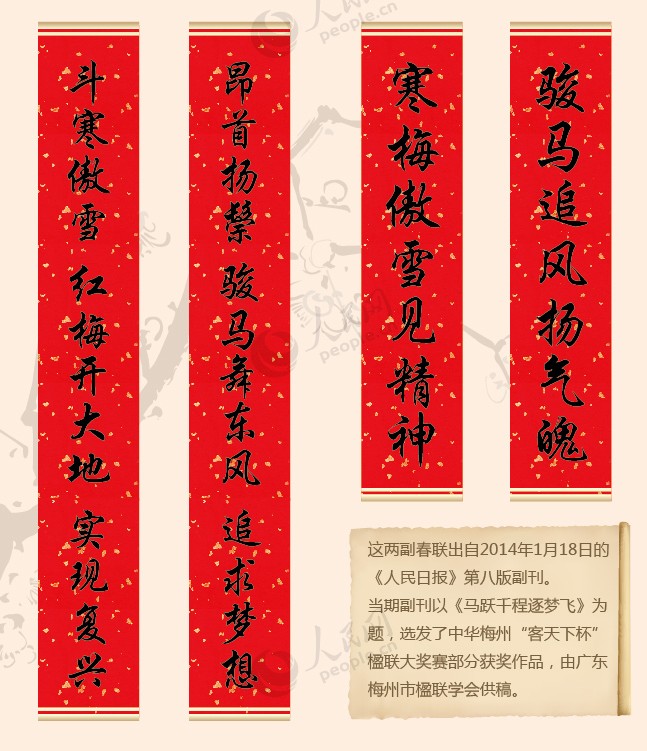 骏马追风扬气魄
寒梅傲雪见精神
昂首扬鬃 骏马舞东风 追求梦想
斗寒傲雪 红梅开大地 实现复兴
这两副春联出自2014年1月18日的
《人民日报》第八版副刊。
当期副刊以《马跃千程逐梦飞》为
题，选发了中华梅州“客天下杯”
楹联大奖赛部分获奖作品，由广东
梅州市楹联学会供稿。
人民网
people.cn
人民网
people.cn
人民网
people.cn